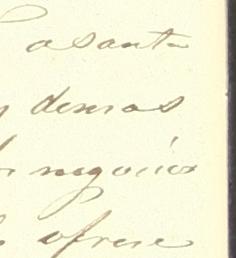 asunto
demas
negocios
ofrese